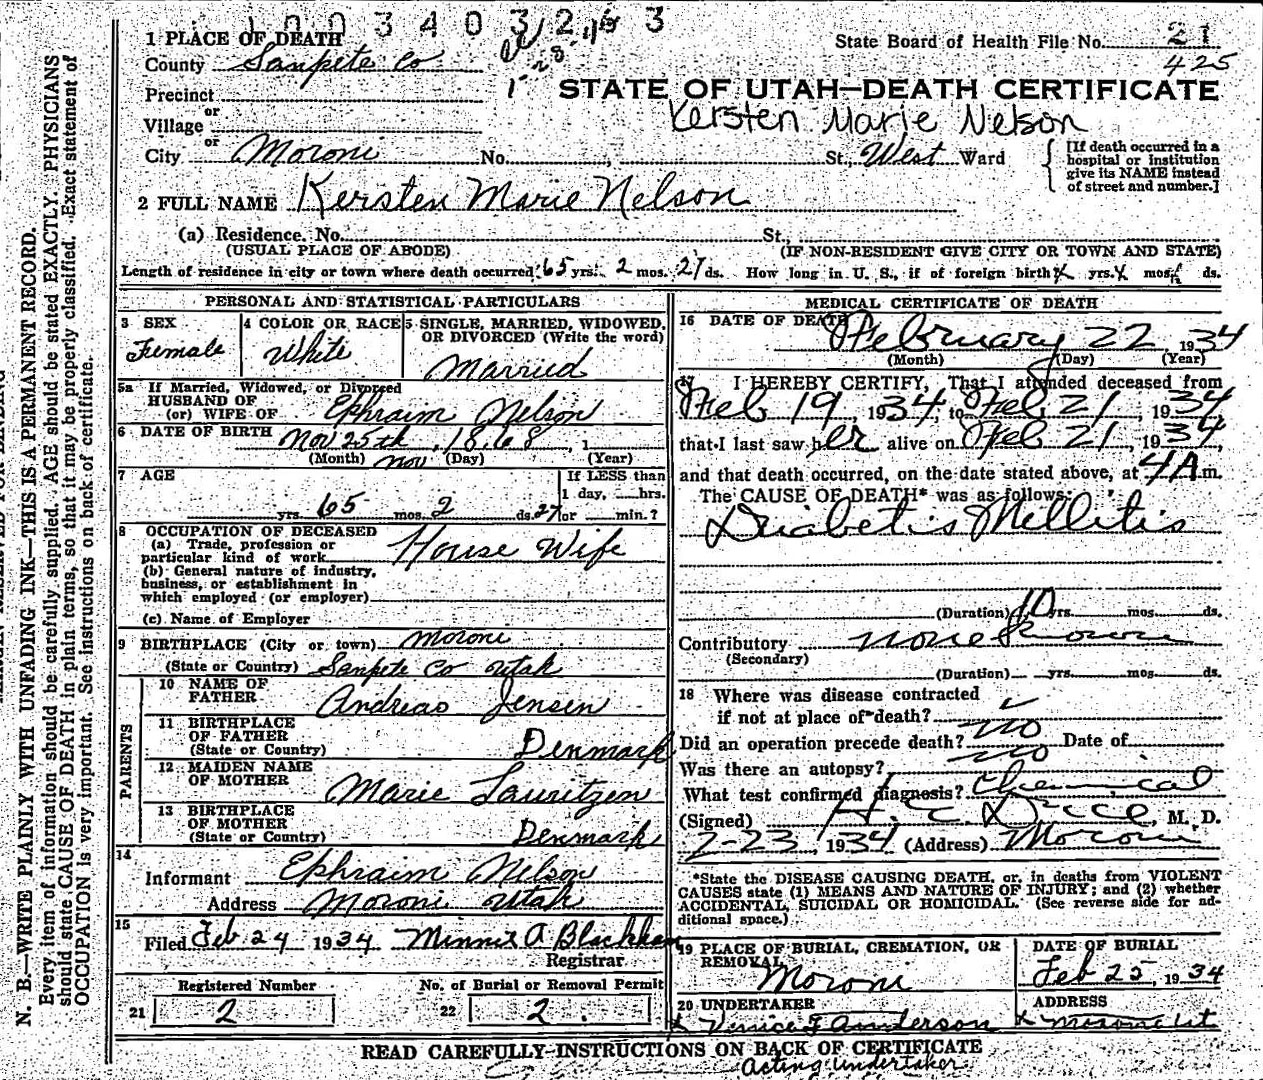 1003403263
1 PLACE OF DEATH
County Sanpete Co
Precinct
or
Village
or
City Moroni No. , St., West Ward
State Board of Health File No. 21
425
STATE OF UTAH—DEATH CERTIFICATE
Kersten Marie Nelson
[If death occurred in a
hospital or institution
give its NAME instead
of street and number.]
2 FULL NAME Kersten Marie Nelson
(a) Residence. No. St.,
(USUAL PLACE OF ABODE) (IF NON-RESIDENT GIVE CITY OR TOWN AND STATE)
Length of residence in city or town where death occurred 65 yrs. 2 mos. 27 ds. How long in U. S., if of foreign birth? x yrs. x mos. x ds.
PERSONAL AND STATISTICAL PARTICULARS
3 SEX
Female
4 COLOR OR RACE
White
5 SINGLE, MARRIED, WIDOWED,
OR DIVORCED (Write the word)
Married
5a If Married, Widowed, or Divorced
HUSBAND OF
(or) WIFE OF Ephraim Nelson
6 DATE OF BIRTH Nov 25th, 1868, 1
(Month) nov (Day) (Year)
7 AGE
If LESS than
1 day, hrs.
yrs. 65 mos. 2 ds. 27 or min.?
8 OCCUPATION OF DECEASED
(a) Trade, profession or
particular kind of work House Wife
(b) General nature of industry,
business, or establishment in
which employed (or employer)
(c) Name of Employer
9 BIRTHPLACE (City or town) Moroni
(State or Country) Sanpete Co Utah
PARENTS
10 NAME OF
FATHER Andreas Jensen
11 BIRTHPLACE
OF FATHER
(State or Country) Denmark
12 MAIDEN NAME
OF MOTHER Marie Lauritzen
13 BIRTHPLACE
OF MOTHER
(State or Country) Denmark
14
Informant Ephraim Nelson
Address Moroni Utah
15
Filed Feb 24 1934 Minnie A Blackham
Registrar
Registered Number
21 2
No. of Burial or Removal Permit
22 2
MEDICAL CERTIFICATE OF DEATH
16 DATE OF DEATH February 22, 1934
(Month) (Day) (Year)
17 I HEREBY CERTIFY, That I attended deceased from
Feb 19, 1934, to Feb 21, 1934
that I last saw her alive on Feb 21, 1934
and that death occurred, on the date stated above, at 4 A.m.
The CAUSE OF DEATH* was as follows:
Diabetis Mellitis
(Duration) 10 yrs. mos. ds.
Contributory none known
(Secondary)
(Duration) yrs. mos. ds.
18 Where was disease contracted
if not at place of death?
Did an operation precede death? no Date of
Was there an autopsy? no
What test confirmed diagnosis? Chemical
(Signed) H. C. Dice, M. D.
2-23, 1934 (Address) Moroni
*State the DISEASE CAUSING DEATH, or, in deaths from VIOLENT
CAUSES state (1) MEANS AND NATURE OF INJURY; and (2) whether
ACCIDENTAL, SUICIDAL OR HOMICIDAL. (See reverse side for ad-
ditional space.)
19 PLACE OF BURIAL, CREMATION, OR
REMOVAL
Moroni
DATE OF BURIAL
Feb 25, 1934
20 UNDERTAKER
x Venice F Anderson
ADDRESS
x Moroni Ut
READ CAREFULLY INSTRUCTIONS ON BACK OF CERTIFICATE
acting undertaker
N. B.—WRITE PLAINLY WITH UNFADING INK—THIS IS A PERMANENT RECORD.
Every item of information should be carefully supplied. AGE should be stated EXACTLY. PHYSICIANS
should state CAUSE OF DEATH in plain terms, so that it may be properly classified. Exact statement of
OCCUPATION is very important. See instructions on back of certificate.